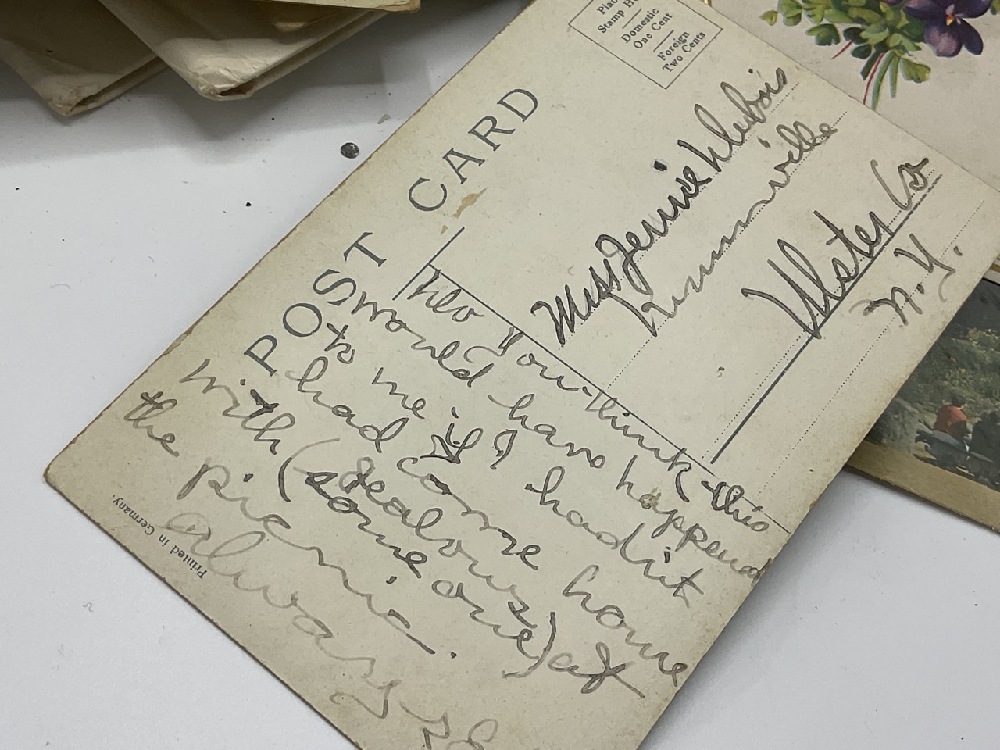 Place
Stamp H
Domestic
One Cent
Foreign
Two Cents
POST CARD
Miss Jennie Dubois
Ulster Co
N. Y.
You think this
would have happened
to me if I hadn't
had come home
with (Jealous
(some one) at
the picnic.
Always
Printed in Germany.